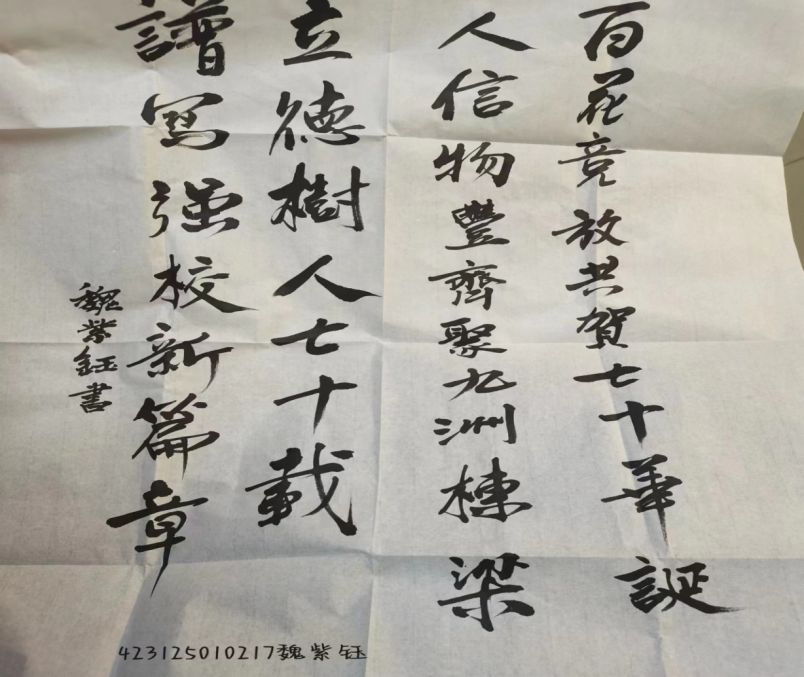 百花竞放共賀七十華誕
人信物豐齊聚九洲棟梁
立德樹人七十載
譜寫强校新篇章
魏紫鈺書
423125010217魏紫钰